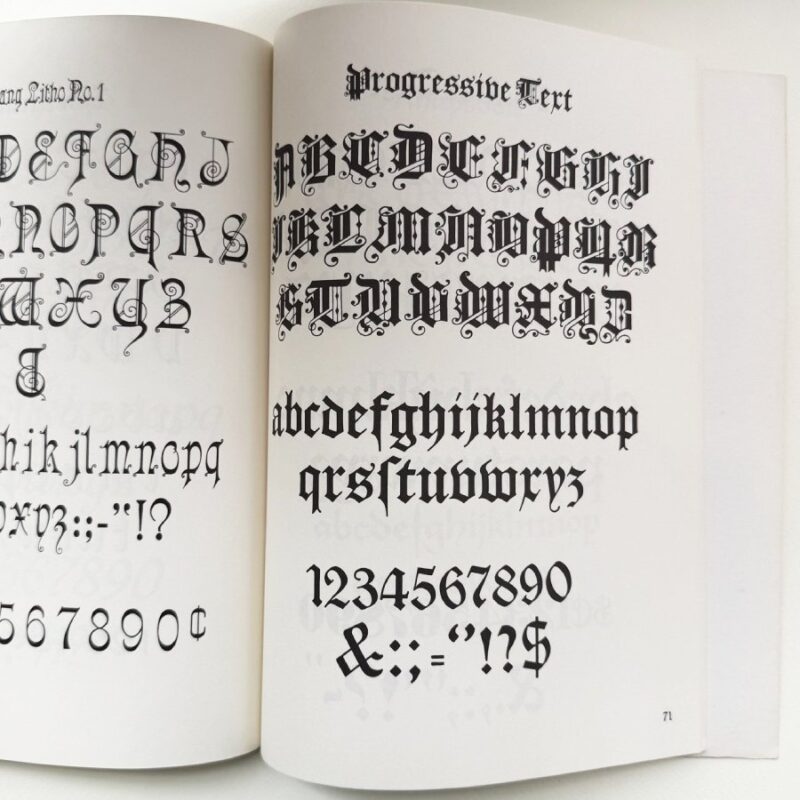 ang Litho No.1
DEFGHJ
NOPQRS
WXYZ
hikjlmnopq
xyz:;-"!?
567890¢
Progressive Text
ABCDEFGHI
JKLMNOPQR
STUVWXYZ
abcdefghijklmnop
qrsſtuvwxyz
1234567890
&:;=“”!?$
71